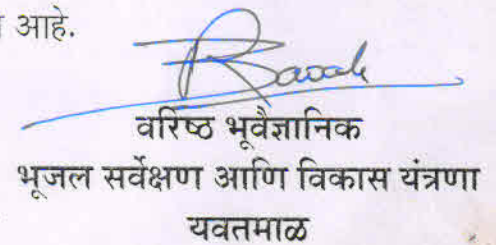 आहे.
वरिष्ठ भूवैज्ञानिक
भूजल सर्वेक्षण आणि विकास यंत्रणा
यवतमाळ